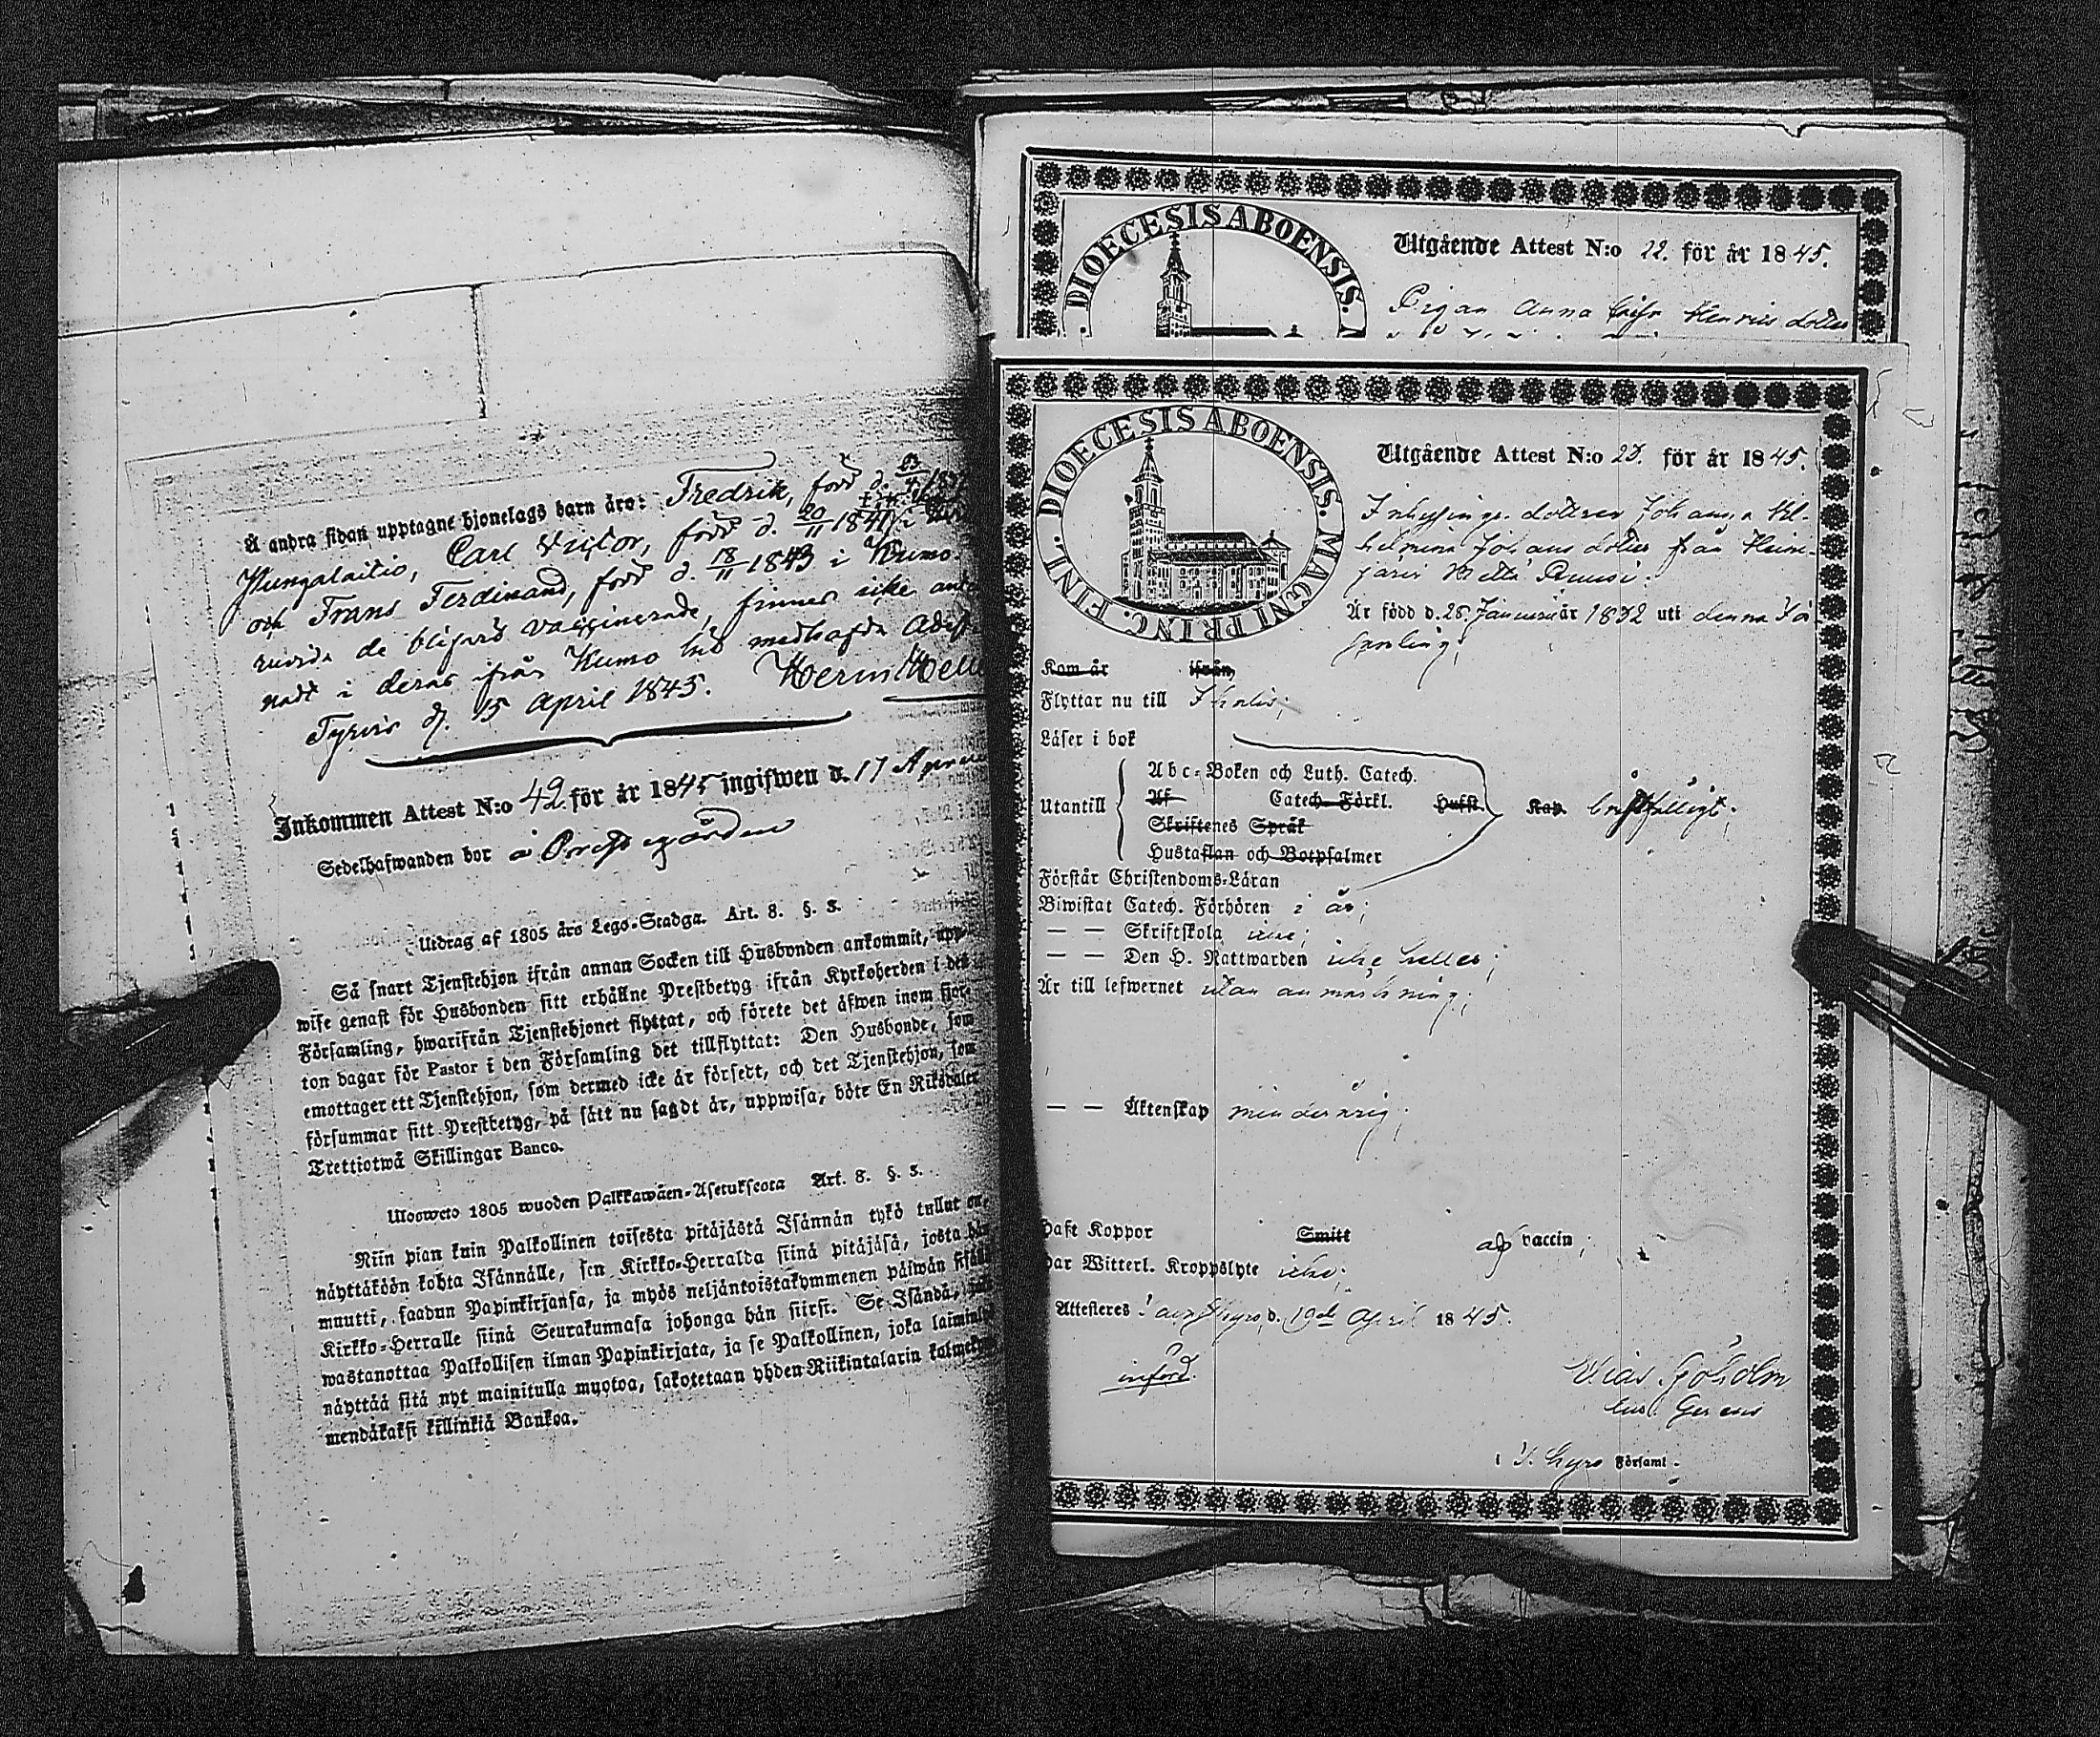 Å andra sidan upptagne hjonelags barn äro: Fredrik, född d. 23/4
Kungalaitio, Carl Victor, född d. 20/11 1841 i
och Frans Ferdinand, född d. 18/11 1843 i Kumo.
de blifvit vaccinerade, finnes icke
i deras ifrån Kumo hit medhafda
Tyrvis d. 15 April 1845. Herm Hell
Inkommen Attest N:o 42 för år 1845 ingifwen d. 17 April
Sedelhafwanden bor å Prestgården
Utdrag af 1805 års Lego-Stadga. Art. 8. §. 3.
Så snart Tjenstehjon ifrån annan Socken till Husbonden ankommit, upp-
wise genast för Husbonden sitt erhållne Prestbetyg ifrån Kyrkoherden i den
Församling, hwarifrån Tjenstehjonet flyttat, och förete det äfwen inom fjor-
ton dagar för Pastor i den Församling det tillflyttat: Den Husbonde, som
emottager ett Tjenstehjon, som dermed icke är försedt, och det Tjenstehjon, som
försummar sitt Prestbetyg, på sätt nu sagdt är, uppwisa, böte En Riksdaler
Trettiotwå Skillingar Banco.
Ulosweto 1805 wuoden Palkkawäen-Asetuksesta Art. 8. §. 3.
Niin pian kuin Palkollinen toisesta pitäjästä Isännän tykö tullut on,
näyttäköön kohta Isännälle, sen Kirkko-Herralda siinä pitäjäsä, josta hän
muutti, saadun Papinkirjansa, ja myös neljäntoistakymmenen päiwän sisällä
Kirkko-Herralle siinä Seurakunnasa johonga hän siirsi. Se Isändä, joka
wastanottaa Palkollisen ilman Papinkirjata, ja se Palkollinen, joka laiminlyö
näyttää sitä nyt mainitulla muotoa, sakotetaan yhden Riikintalarin kolmekym-
mendäkaksi killinkiä Bankoa.
DIOECESIS ABOENSIS. M
Utgående Attest N:o 22. för år 1845.
Pigan Anna Caisa Henricsdotter
DIOECESIS ABOENSIS. MAGNI PRINC. FINL.
Utgående Attest N:o 23. för år 1845.
Inhysinge dottren Johanna Vil-
helmina Johansdotter från Heini-
järvi
Är född d. 25 Januari år 1832 uti denna För
samling;
Kom år ifrån
Flyttar nu till Ikalis;
Läser i bok
Utantill
Abc-Boken och Luth. Catech.
Af Catech. Förkl. Hufst. Kap. bristfälligt;
Skriftenes Språk
Hustaflan och Botpsalmer
Förstår Christendoms-Läran
Biwistat Catech. Förhören i år;
— — Skriftskola icke;
— — Den H. Nattwarden icke heller;
Är till lefwernet utan anmärkning;
— — Äktenskap minderårig;
Haft Koppor Smitt af vaccin;
Har Witterl. Kroppslyte icke;
Attesteres i Tavastkyro, d. 19de April 1845.
införd.
i T. Kyro Församl.